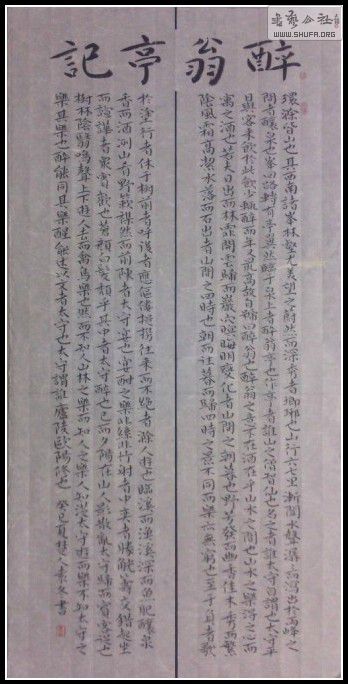 書藝公社
WWW.SHUFA.ORG
醉翁亭記
環滁皆山也其西南諸峯林壑尤美望之蔚然而深秀者瑯琊也山行六七里漸聞水聲潺潺而瀉出於兩峰之
間者釀泉也峯回路轉有亭翼然臨于泉上者醉翁亭也作亭者誰山之僧智仙也名之者誰太守自謂也太守
與客來飲於此飲少輒醉而年又最高故自號曰醉翁也醉翁之意不在酒在乎山水之間也山水之樂得之心而
寓之酒也若夫日出而林霏開雲歸而巖穴暝晦明變化者山間之朝暮也野芳發而幽香佳木秀而繁
陰風霜高潔水落而石出者山間之四時也朝而往暮而歸四時之景不同而樂亦無窮也至于負者歌
於塗行者休于樹前者呼後者應傴僂提攜往來而不絕者滁人遊也臨溪而漁溪深而魚肥釀泉
香而酒洌山肴野蔌雜然而前陳者太守宴也宴酣之樂非絲非竹射者中奕者勝觥籌交錯起坐
而諠譁者衆賓歡也蒼顏白髮頹乎其中者太守醉也已而夕陽在山人影散亂太守歸而賓客從也
樹林陰翳鳴聲上下遊人去而禽鳥樂也然而禽鳥知山林之樂而不知人之樂人知從太守遊而樂而不知太守之
樂其樂也醉能同其樂醒能述以文者太守也太守謂誰廬陵歐陽修也 癸巳夏楚人書